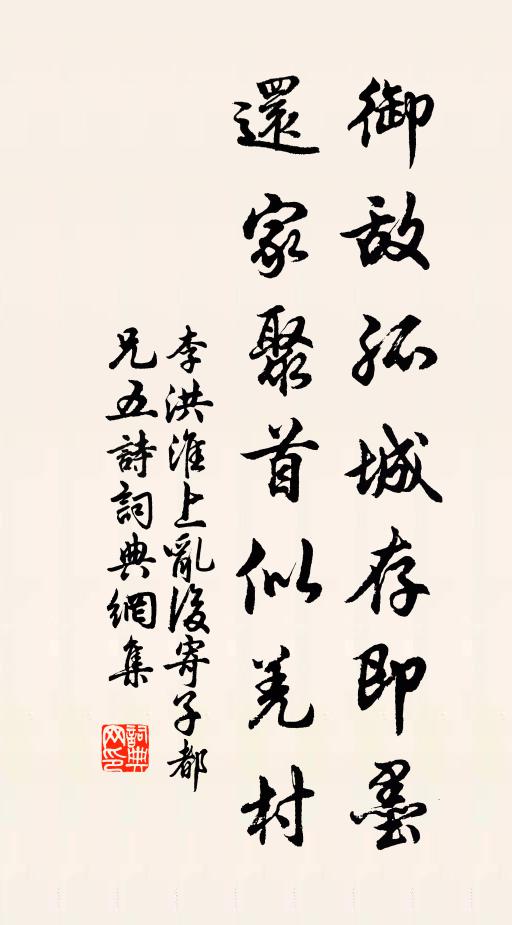 御敌孤城存即墨
還家聚首似羌村
李洪淮上亂後寄子都
兄五詩詞典網集
詞典
网印